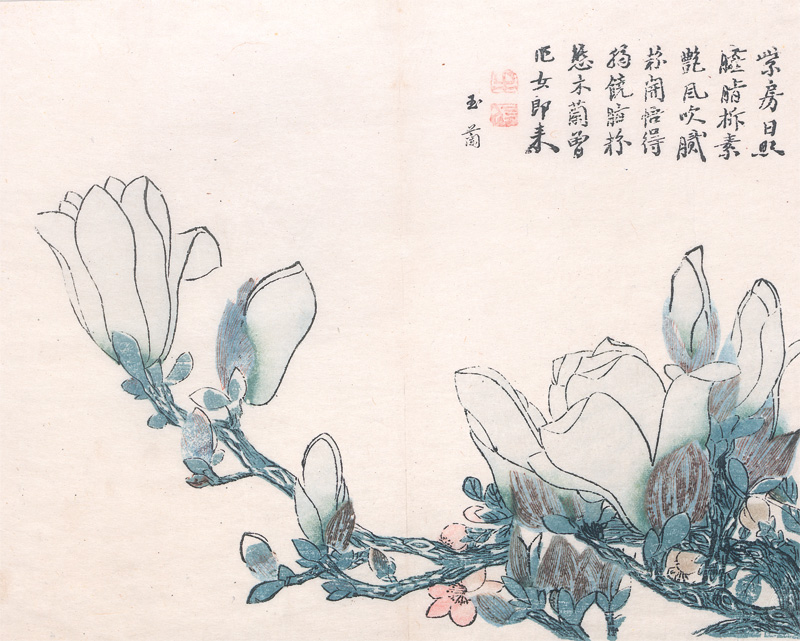 紫房日照
臙脂拆素
艷風吹膩
粉開恠得
獨饒脂粉
態木蘭曾
作女郎来
玉蘭